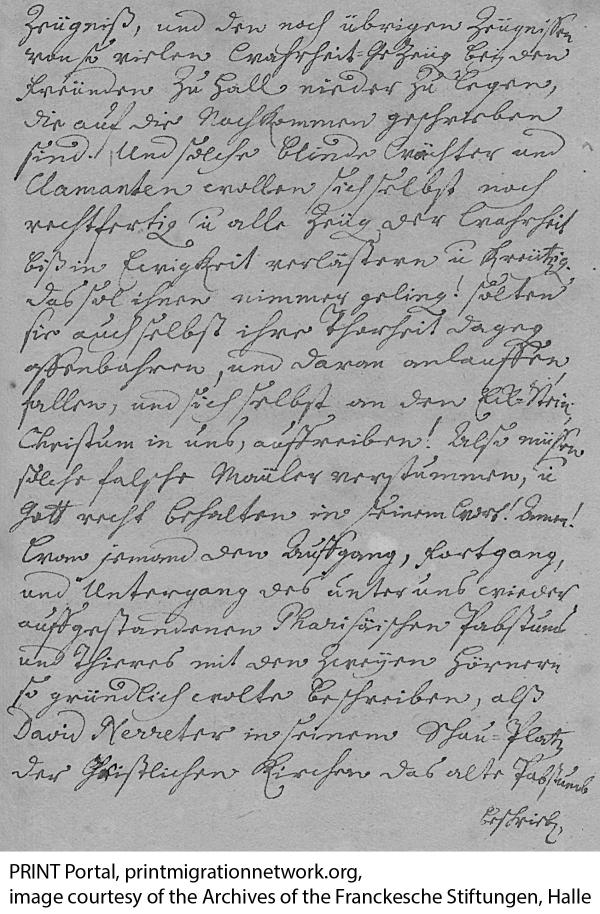 Zeügniß, und den noch übrigen Zeügnissen
von so vielen Wahrheit=Gezeüg bei den
Freünden Zu Hall nieder Zu legen,
die auf die Nachkommen geschrieben
sind. Und solche blinde Wächter und
Clamanten wollen sich selbst noch
rechtfertig u alle Zeüg der Wahrheit
biß in Ewigkeit verlästern u Kreützig.
das sol ihnen nimmer geling! solten
sie auch selbst ihre Thorheit dageg
offenbahren, und daran anlauffen,
fallen, und sich selbst an den Eck=Stein,
Christum in uns, aufreiben! Also müssen
solche falsche Mäuler verstummen, u
Gott recht behalten in seinem Wort! Amen!
Wan jemand den Auffgang, Fortgang,
und Untergang des unter uns wieder
auffgestandenen Pharisäischen Pabstums
und Thieres mit den Zweyen Hörnern
so gründlich wolte beschreiben, alß
David Nerreter in seinem Schau=Platz
der Christlichen Kirchen das alte Pabstumb
beschrieb,
PRINT Portal, printmigrationnetwork.org,
image courtesy of the Archives of the Franckesche Stiftungen, Halle